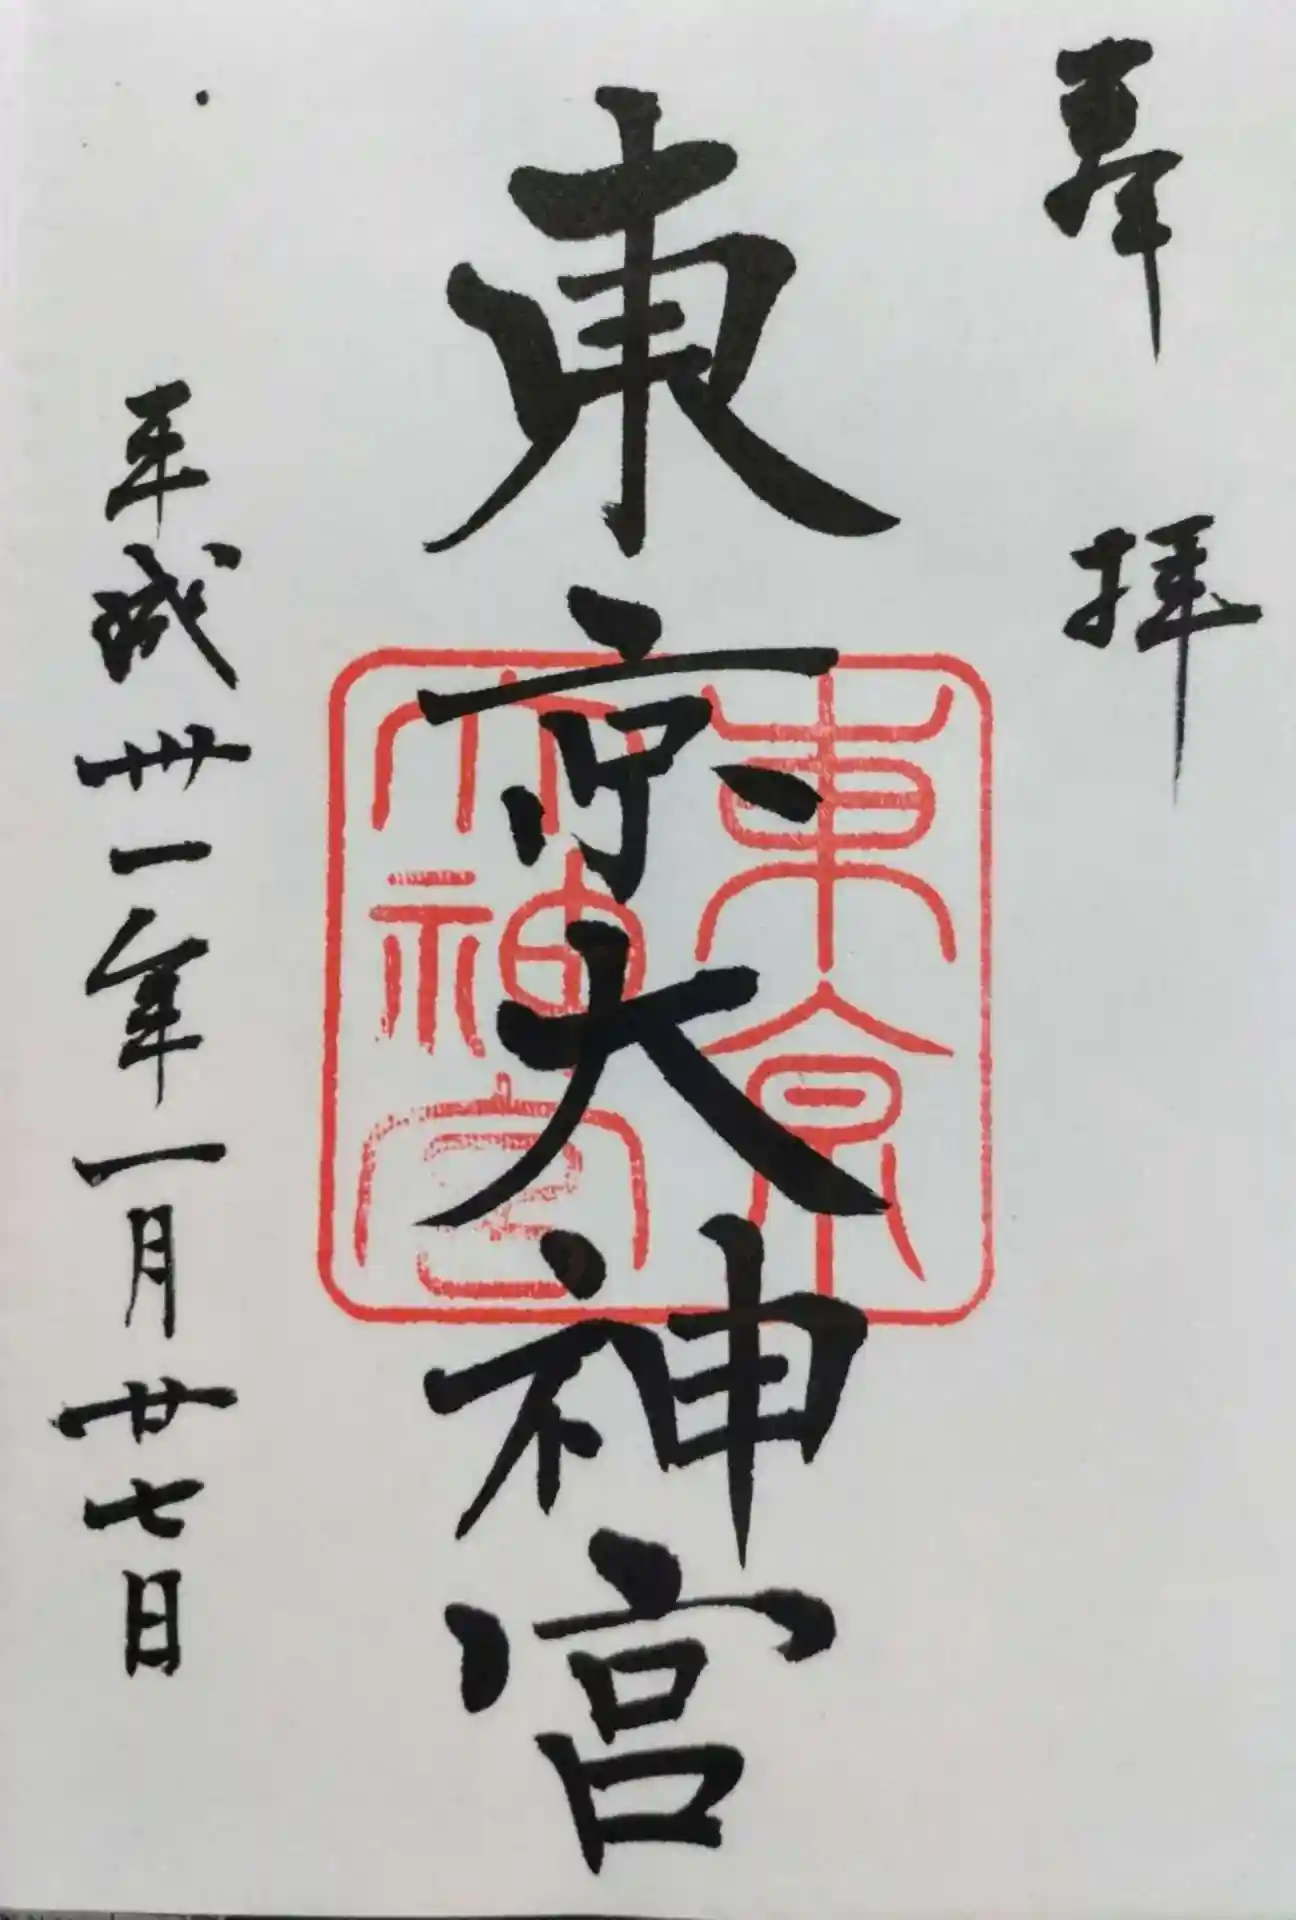 奉拝
東京大神宮
東京
大神宮
平成卅一年一月廿七日